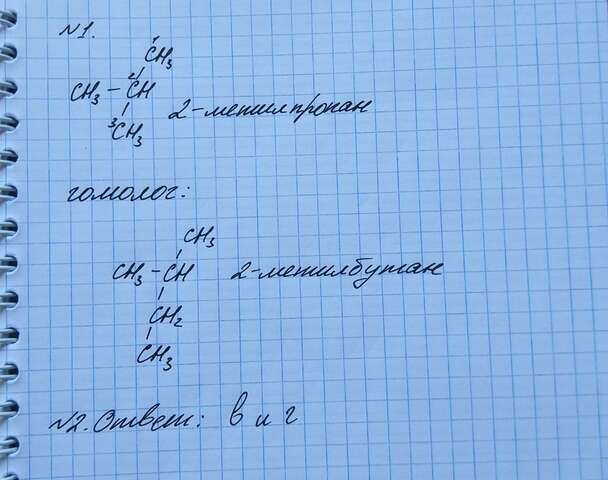 №1.
¹CH₃
CH₃ – ²CH
³CH₃ 2-метилпропан
гомолог:
CH₃
CH₃ – CH 2-метилбутан
CH₂
CH₃
№2. Ответ: в и г